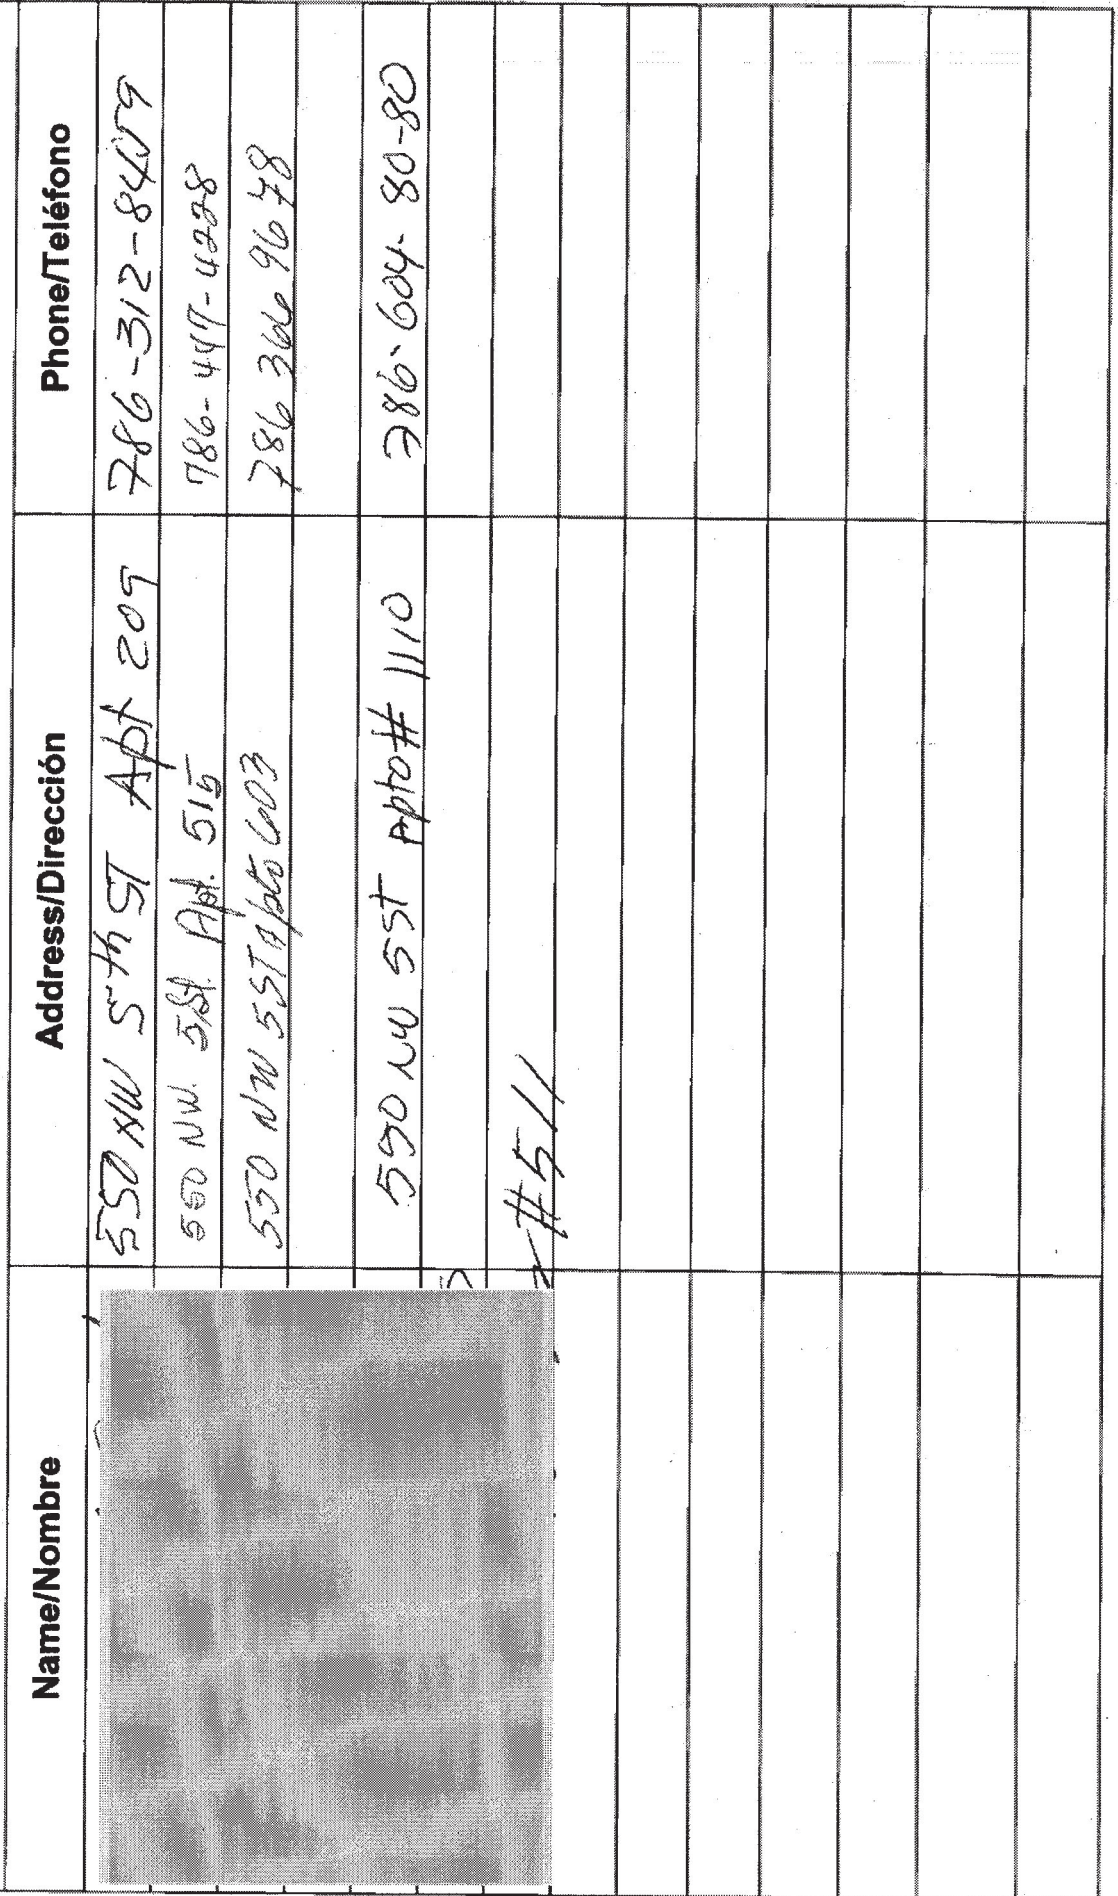 Name/Nombre Address/Dirección Phone/Teléfono
550 NW 5th ST Apt 209 786-312-8459
550 NW. 5 St. Apt. 515 786-447-4228
550 NW 5 ST Apto 603 786 366 9678
550 NW 5 ST Apto# 1110 786-604-80-80
#511